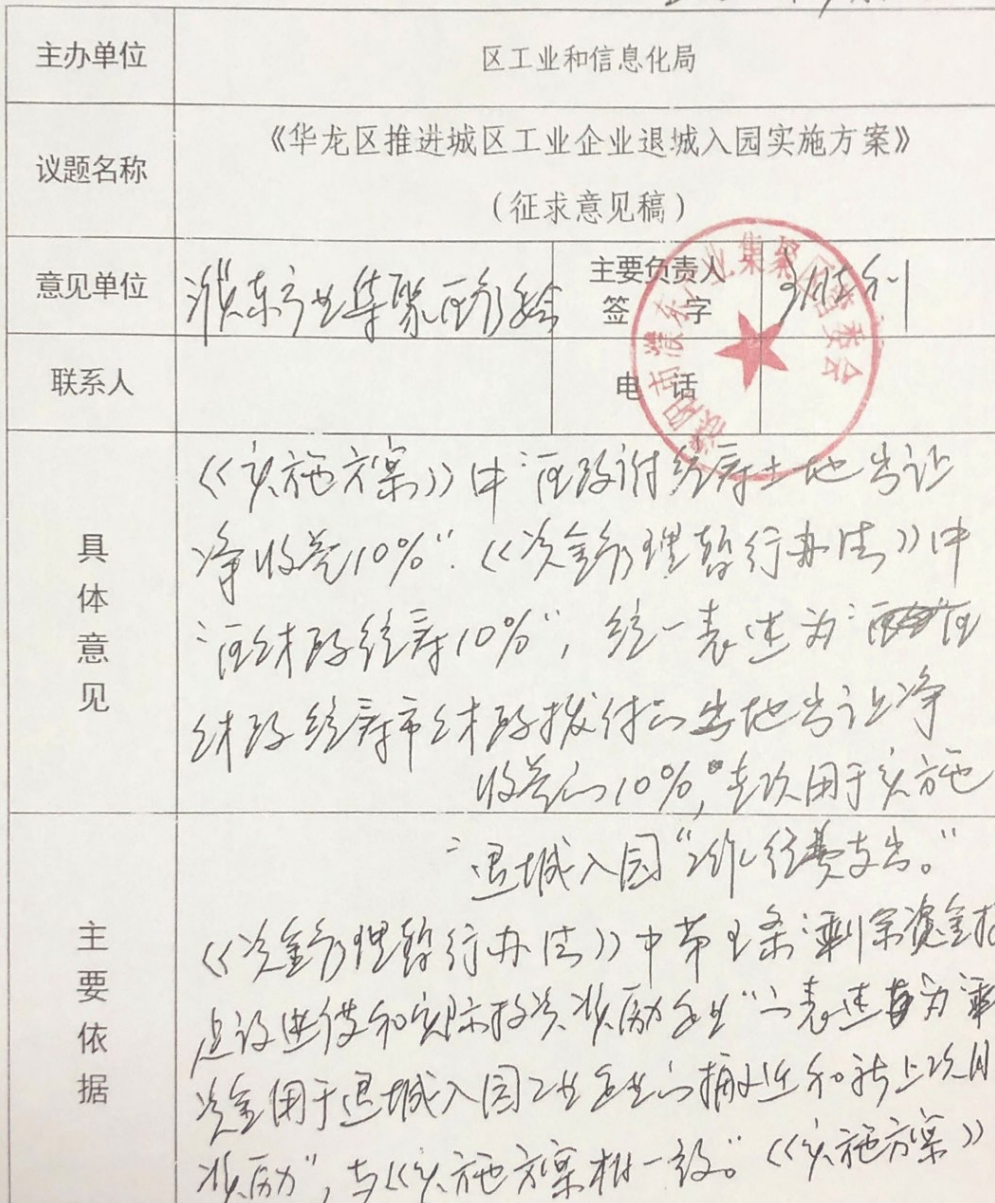 主办单位 区工业和信息化局
议题名称 《华龙区推进城区工业企业退城入园实施方案》
（征求意见稿）
意见单位 濮东产业集聚区管委会 主要负责人
签 字
濮阳市濮东产业集聚区管委会
联系人 电 话
具体意见
《实施方案》中“区政府统筹土地出让
净收益10%”.《资金管理暂行办法》中
“区财政统筹10%”, 统一表述为“区
财政统筹市财政拨付的土地出让净
收益的10%, 专项用于实施
“退城入园”工作经费支出。”
主要依据
《资金管理暂行办法》中第五条“剩余资金按
建设进度和实际投资奖励企业”的表述为“剩
资金用于退城入园工业企业的搬迁和新上项目
奖励”, 与《实施方案相一致。”《实施方案》